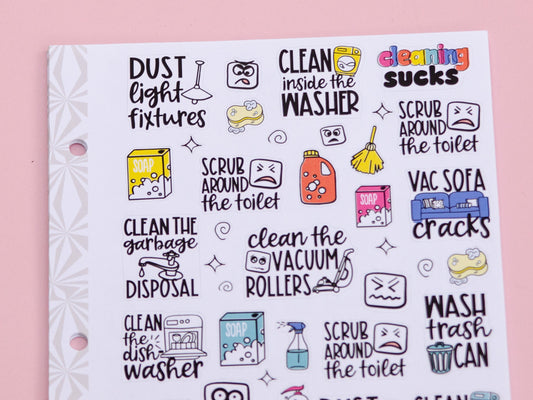 DUST
light
fixtures
CLEAN
inside the
WASHER
cleaning
sucks
SCRUB
AROUND
the toilet
SOAP
SCRUB
AROUND
the toilet
SOAP
VAC SOFA
cracks
CLEAN THE
garbage
DISPOSAL
clean the
VACUUM
ROLLERS
WASH
trash
CAN
CLEAN
the
dish
washer
SOAP
SCRUB
AROUND
the toilet
DUST
CLEAN